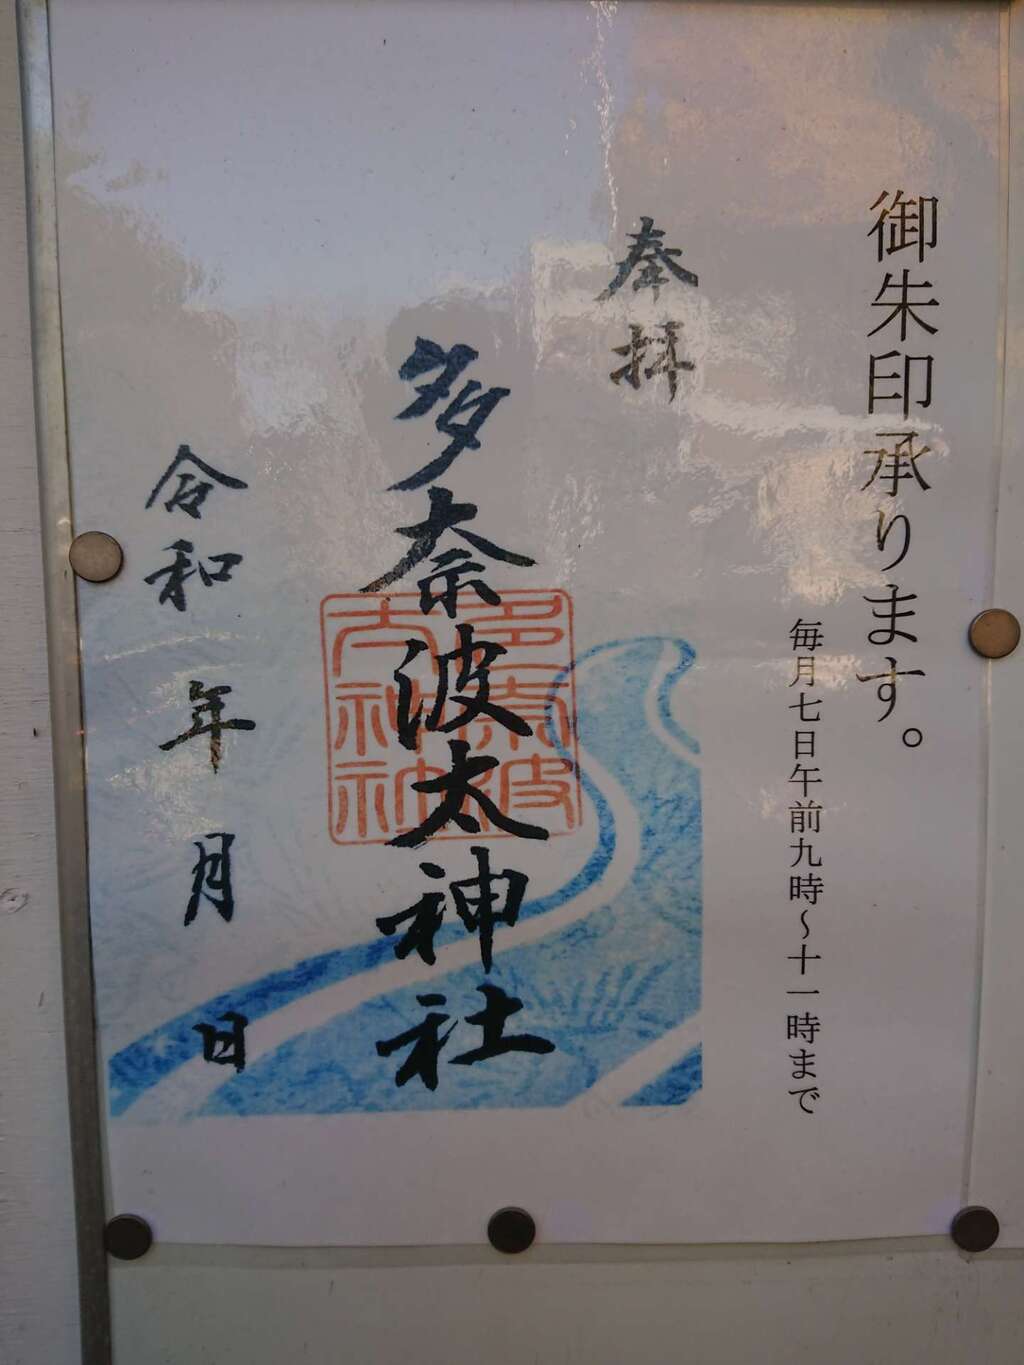 御朱印承ります。
毎月七日午前九時～十一時まで
奉拝
多奈波太神社
多奈波
太神社
令和 年 月 日